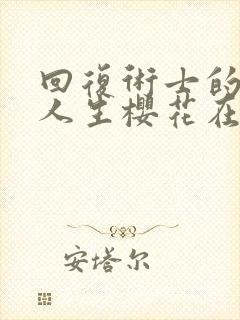 回復術士的
人生樱花在
安塔尔